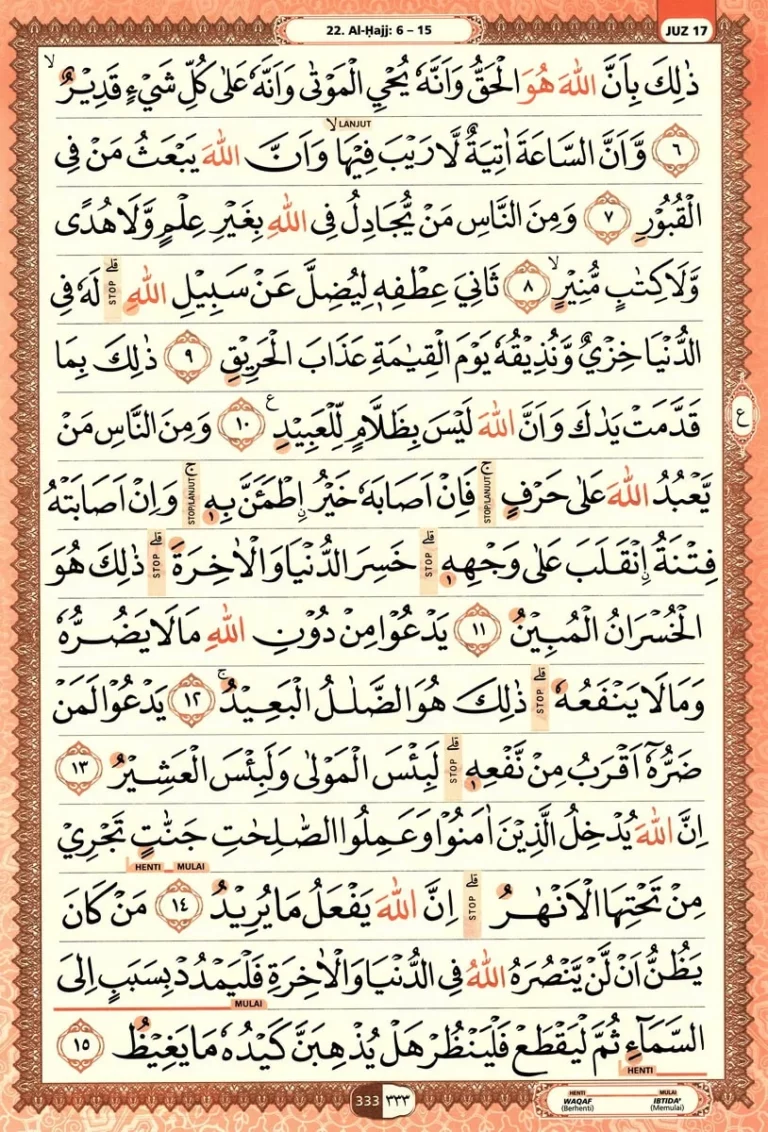 22. Al-Ḥajj: 6 – 15
JUZ 17
ذٰلِكَ بِاَنَّ اللّٰهَ هُوَ الْحَقُّ وَاَنَّهٗ يُحْيِ الْمَوْتٰى وَاَنَّهٗ عَلٰى كُلِّ شَيْءٍ قَدِيْرٌ ۙ
LANJUT
٦ وَّاَنَّ السَّاعَةَ اٰتِيَةٌ لَّا رَيْبَ فِيْهَا ۙ وَاَنَّ اللّٰهَ يَبْعَثُ مَنْ فِى
الْقُبُوْرِ ٧ وَمِنَ النَّاسِ مَنْ يُّجَادِلُ فِى اللّٰهِ بِغَيْرِ عِلْمٍ وَّلَا هُدًى
وَّلَا كِتٰبٍ مُّنِيْرٍ ۙ ٨ ثَانِيَ عِطْفِهٖ لِيُضِلَّ عَنْ سَبِيْلِ اللّٰهِ ۗ STOP لَهٗ فِى
الدُّنْيَا خِزْيٌ وَّنُذِيْقُهٗ يَوْمَ الْقِيٰمَةِ عَذَابَ الْحَرِيْقِ ٩ ذٰلِكَ بِمَا
ع
قَدَّمَتْ يَدٰكَ وَاَنَّ اللّٰهَ لَيْسَ بِظَلَّامٍ لِّلْعَبِيْدِ ࣖ ١٠ وَمِنَ النَّاسِ مَنْ
يَّعْبُدُ اللّٰهَ عَلٰى حَرْفٍ ۚ STOP/LANJUT فَاِنْ اَصَابَهٗ خَيْرُ ۨاطْمَئَنَّ بِهٖ ۚ STOP/LANJUT وَاِنْ اَصَابَتْهُ
فِتْنَةُ ۨانْقَلَبَ عَلٰى وَجْهِهٖ ۗ STOP خَسِرَ الدُّنْيَا وَالْاٰخِرَةَ ۗ STOP ذٰلِكَ هُوَ
الْخُسْرَانُ الْمُبِيْنُ ١١ يَدْعُوْا مِنْ دُوْنِ اللّٰهِ مَا لَا يَضُرُّهٗ
وَمَا لَا يَنْفَعُهٗ ۗ STOP ذٰلِكَ هُوَ الضَّلٰلُ الْبَعِيْدُ ۚ ١٢ يَدْعُوْا لَمَنْ
ضَرُّهٗٓ اَقْرَبُ مِنْ نَّفْعِهٖ ۗ STOP لَبِئْسَ الْمَوْلٰى وَلَبِئْسَ الْعَشِيْرُ ١٣
اِنَّ اللّٰهَ يُدْخِلُ الَّذِيْنَ اٰمَنُوْا وَعَمِلُوا الصّٰلِحٰتِ جَنّٰتٍ تَجْرِيْ
HENTI MULAI
مِنْ تَحْتِهَا الْاَنْهٰرُ ۗ STOP اِنَّ اللّٰهَ يَفْعَلُ مَا يُرِيْدُ ١٤ مَنْ كَانَ
يَظُنُّ اَنْ لَّنْ يَّنْصُرَهُ اللّٰهُ فِى الدُّنْيَا وَالْاٰخِرَةِ فَلْيَمْدُدْ بِسَبَبٍ اِلَى
MULAI
السَّمَاۤءِ ثُمَّ لْيَقْطَعْ فَلْيَنْظُرْ هَلْ يُذْهِبَنَّ كَيْدُهٗ مَا يَغِيْظُ ١٥
HENTI
333 ٣٣٣
HENTI MULAI
WAQAF IBTIDA'
(Berhenti) (Memulai)